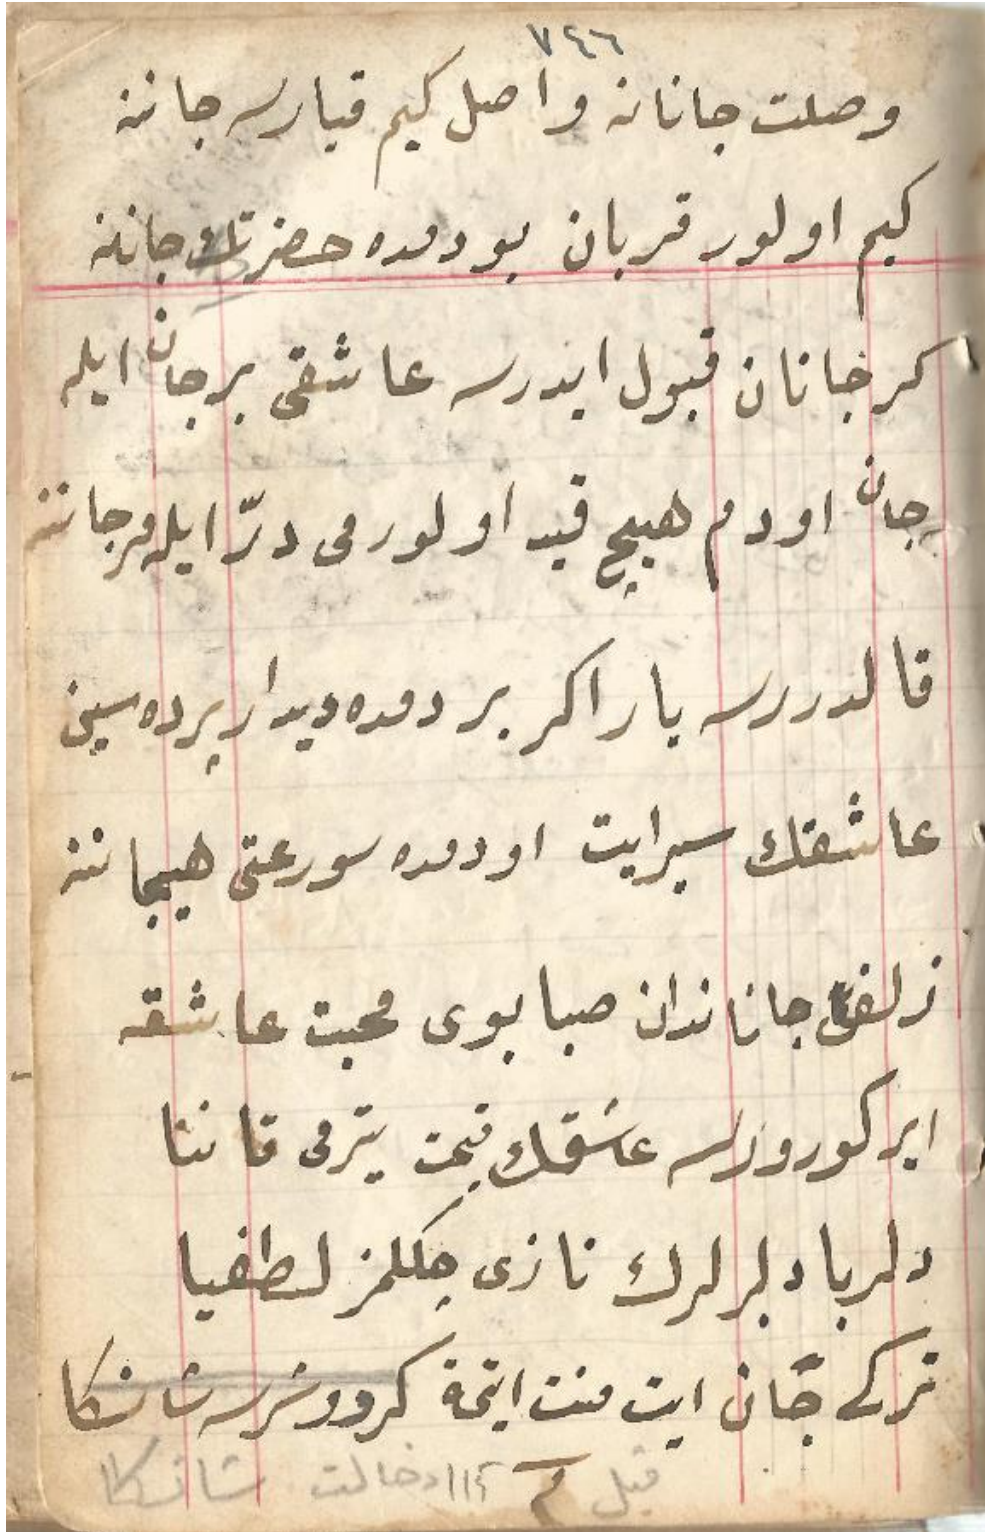 ٧٤٦
وصلت جانانه واصل كيم قيارسه جاننه
كيم اولور قربان بودمده حضرت جاننه
كرخانان قبول ايدرسه عاشقى برجان ايله
جان اودم هيچ قيد اولورمى درّ ايله مرجاننه
قالدررسه يار اكر بر دمده ديدار پرده سين
عاشقك سيرايت اودمده سورعتى هيجاننه
زلفى جاناندان صبا بوى محبت عاشقه
ايركورورسه عاشقك قيمت يترمى قاننا
دلربا دلبرلرك نازى چكلمز لطفيا
تركے جان ايت منت ايتمه كرودوشرسه شانكا
قبل ١١٢ دخالت شانكا